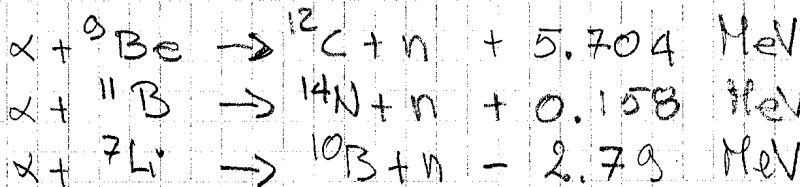 α + ⁹Be → ¹²C + n + 5.704 MeV
α + ¹¹B → ¹⁴N + n + 0.158 MeV
α + ⁷Li → ¹⁰B + n - 2.79 MeV